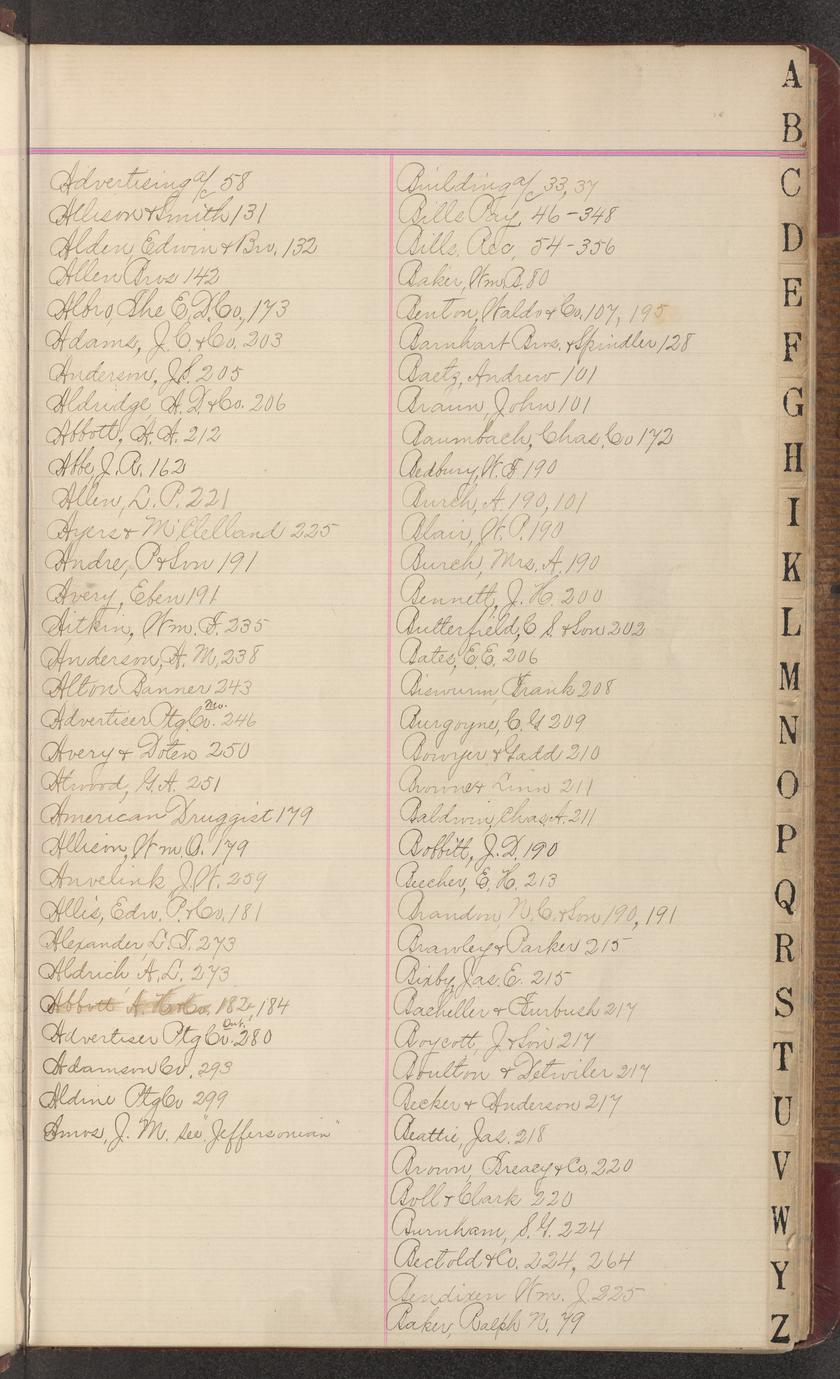 Advertising a/c 58
Allison & Smith 131
Alden Edwin & Bro. 132
Allen Bros 142
Albro, The E. D. Co, 173
Adams, J. C. & Co. 203
Anderson, J. S. 205
Aldridge, A. D. & Co. 206
Abbott, A. A. 212
Abbe, J. R. 162
Allen, L. P. 221
Ayers & McClelland 225
Andre, P & Son 191
Avery, Eben 191
Aitkin, Wm. F. 235
Anderson, A. M, 238
Alton Banner 243
Advertiser Ptg Co. Mo. 246
Avery & Doten 250
Atwood, G. A. 251
American Druggist 179
Allison, Wm. O. 179
Anvelink, J. W. 259
Allis, Edw. P. & Co, 181
Alexander L. T. 273
Aldrich A. L. 273
Abbott A. H. & Co. 182, 184
Advertiser Ptg Co. 280
Adamson Co. 293
Aldine Ptg Co 299
Amos, J. M. see "Jeffersonian"
Building a/c 33, 37
Bills Pay, 46-348
Bills, Rec, 54-356
Baker, Wm. B. 80
Benton, Waldo & Co. 107, 195
Barnhart Bros. & Spindler 128
Baetz, Andrew 101
Braun, John 101
Baumbach, Chas. Co 172
Bedbury, W. F 190
Burch, A. 190, 101
Blair, W. P. 190
Burch, Mrs. A. 190
Bennett, J. H. 200
Butterfield, C S. & Son 202
Bates, E. E. 206
Biswurm, Frank 208
Burgoyne, C. G 209
Bowyer & Gadd 210
Browne & Linn 211
Baldwin, Chas. A. 211
Bobbitt, J. D. 190
Beecher, E. H. 213
Brandon, N. C. & Son 190, 191
Brawley & Parker 215
Bixby, Jas. E. 215
Bacheller & Furbush 217
Boycott, J & Son 217
Boulton & Detwiler 217
Becker & Anderson 217
Beattie, Jas. 218
Brown, Treacy & Co. 220
Boll & Clark 220
Burnham, S. G. 224
Bectold & Co. 224, 264
Bendixen Wm. J. 225
Baker, Ralph N. 79
A
B
C
D
E
F
G
H
I
K
L
M
N
O
P
Q
R
S
T
U
V
W
Y
Z